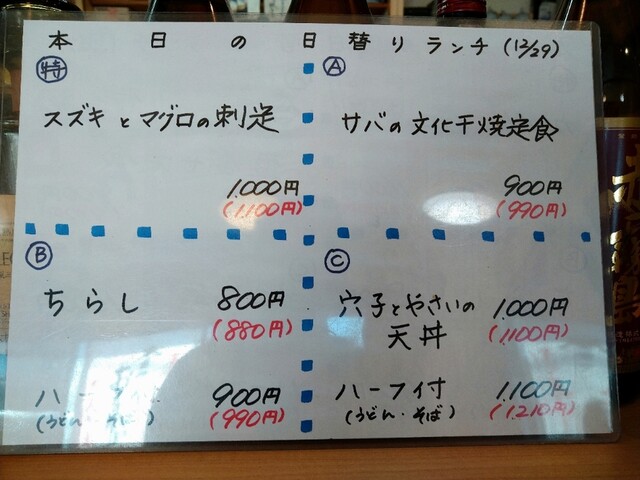 本日の日替りランチ(12/29)
特
スズキとマグロの刺定
1.000円
(1.100円)
A
サバの文化干焼定食
900円
(990円)
B
ちらし 800円
(880円)
900円
(うどん・そば) (990円)
C
穴子とやさいの 1.000円
天丼 (1,100円)
ハーフイ付 1.100円
(うどん・そば) (1.210円)